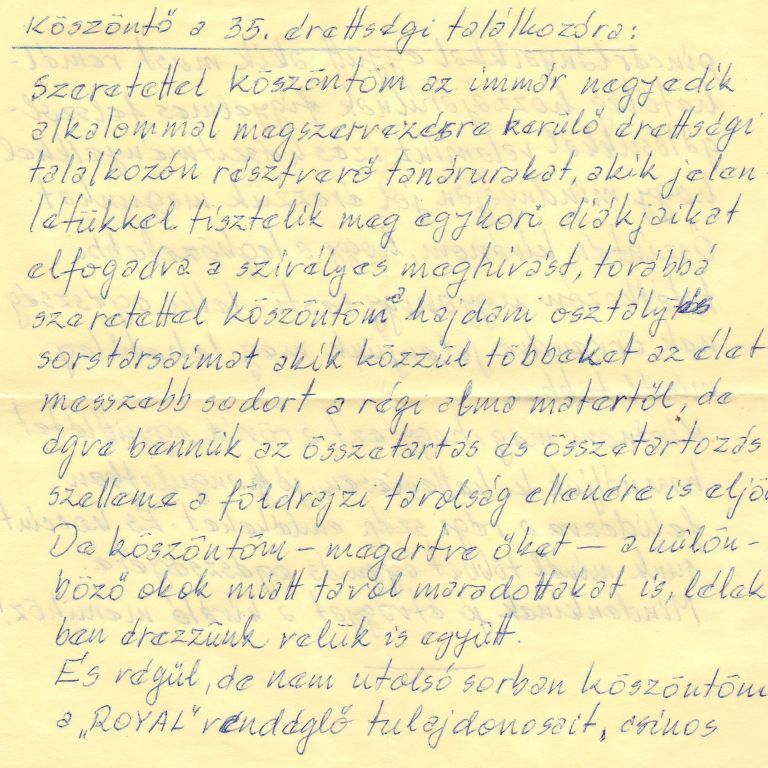 Köszöntő a 35. érettségi találkozóra:
Szeretettel köszöntöm az immár negyedik
alkalommal megszervezésre kerülő érettségi
találkozón résztvevő tanárurakat, akik jelen-
létükkel tisztelik meg egykori diákjaikat
elfogadva a szívélyes meghívást, továbbá
szeretettel köszöntöm a hajdani osztály és
sorstársaimat akik közzül többeket az élet
messzebb sodort a régi alma matertől, de
égve bennük az összetartás és összetartozás
szelleme a földrajzi távolság ellenére is eljö
De köszöntöm – megértve őket – a külön-
böző okok miatt távol maradottakat is, lélek
ben érezzünk velük is együtt.
És végül, de nem utolsó sorban köszöntöm
a „ROYAL" vendéglő tulajdonosait, csinos